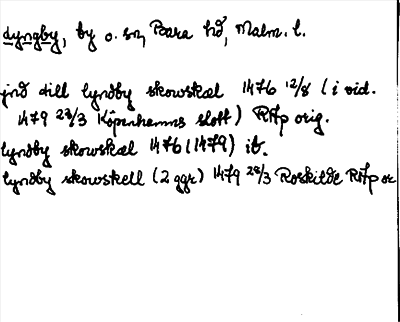 dyngby, by o. sn, Bara hd, Malm. l.
jnd till lyndby skowskæl 1476 12/8 (i vid.
1479 23/3 Köpenhamns slott) RAp orig.
lyndby skowskæl 1476 (1479) ib.
lyndby skowskell (2 ggr) 1479 28/3 Roskilde RAp or